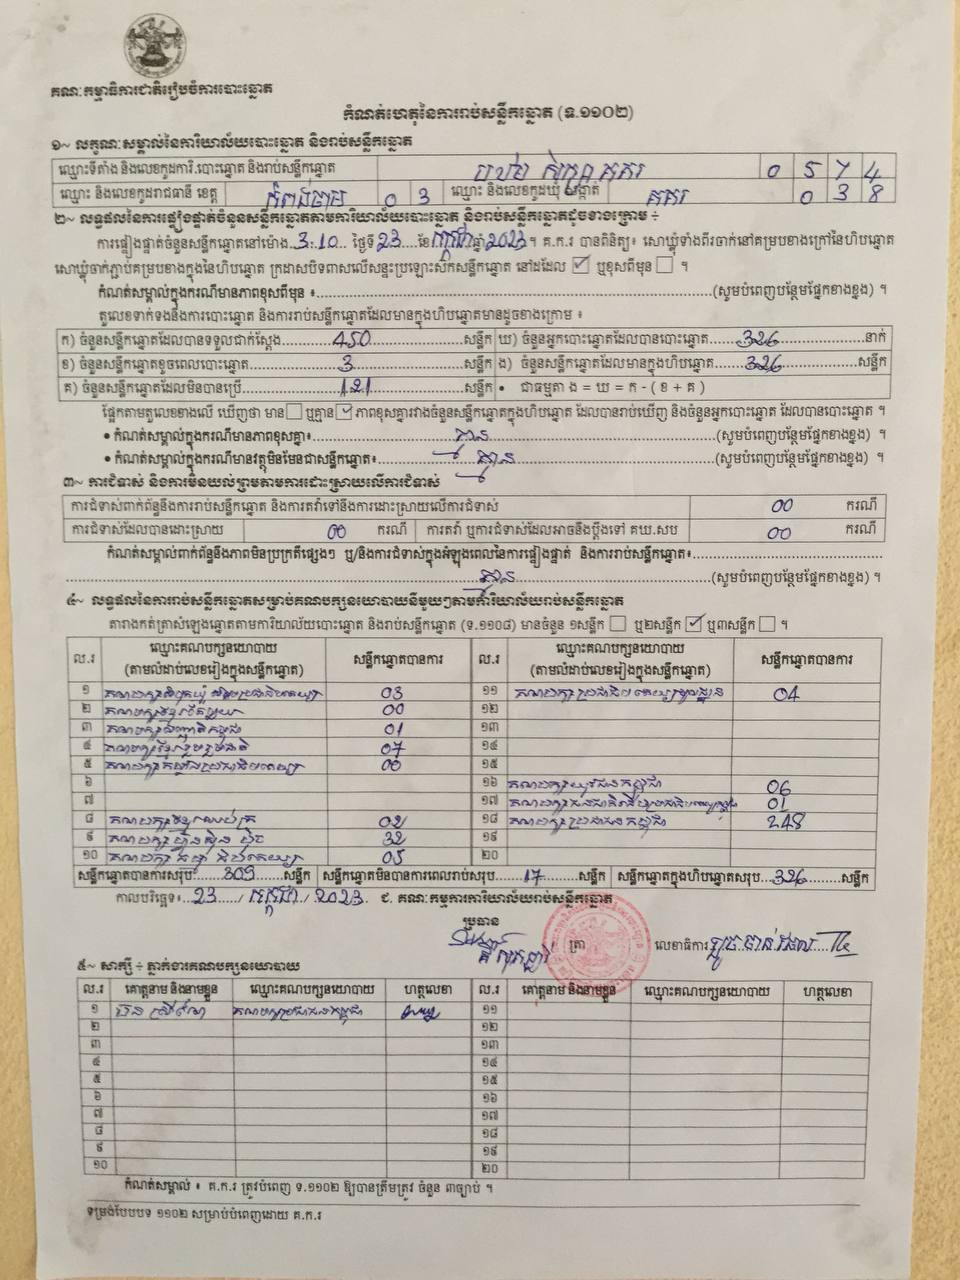 គណៈកម្មាធិការជាតិរៀបចំការបោះឆ្នោត
កំណត់ហេតុនៃការរាប់សន្លឹកឆ្នោត (ទ.១១០២)
១~ លក្ខណៈសម្គាល់នៃការិយាល័យបោះឆ្នោត និងរាប់សន្លឹកឆ្នោត
ឈ្មោះទីតាំង និងលេខកូដការិ.បោះឆ្នោត និងរាប់សន្លឹកឆ្នោត គគរ 0 5 7 4
ឈ្មោះ និងលេខកូដរាជធានី ខេត្ត កំពង់ចាម 0 3 ឈ្មោះ និងលេខកូដឃុំ សង្កាត់ គគរ 0 3 8
២~ លទ្ធផលនៃការផ្ទៀងផ្ទាត់ចំនួនសន្លឹកឆ្នោតតាមការិយាល័យបោះឆ្នោត និងរាប់សន្លឹកឆ្នោតដូចខាងក្រោម ÷
ការផ្ទៀងផ្ទាត់ចំនួនសន្លឹកឆ្នោតនៅម៉ោង 3:10 ថ្ងៃទី 23 ខែ កក្កដា ឆ្នាំ 2023។ គ.ក.រ បានពិនិត្យ៖ សោឃ្នុំទាំងពីរចាក់នៅគម្របខាងក្រៅនៃហិបឆ្នោត
សោឃ្នុំចាក់ភ្ជាប់គម្របខាងក្នុងនៃហិបឆ្នោត ក្រដាសបិទពាសលើសន្ទះប្រឡោះសិកសន្លឹកឆ្នោត នៅដដែល ✓ ឬខុសពីមុន ។
កំណត់សម្គាល់ក្នុងករណីមានភាពខុសពីមុន ៖ (សូមបំពេញបន្ថែមផ្នែកខាងខ្នង) ។
តួលេខទាក់ទងនឹងការបោះឆ្នោត និងការរាប់សន្លឹកឆ្នោតដែលមានក្នុងហិបឆ្នោតមានដូចខាងក្រោម ៖
ក) ចំនួនសន្លឹកឆ្នោតដែលបានទទួលជាក់ស្តែង 450 សន្លឹក ឃ) ចំនួនអ្នកបោះឆ្នោតដែលបានបោះឆ្នោត 326 នាក់
ខ) ចំនួនសន្លឹកឆ្នោតខូចពេលបោះឆ្នោត 3 សន្លឹក ង) ចំនួនសន្លឹកឆ្នោតដែលមានក្នុងហិបឆ្នោត 326 សន្លឹក
គ) ចំនួនសន្លឹកឆ្នោតដែលមិនបានប្រើ 121 សន្លឹក • ជាធម្មតា ង = ឃ = ក - ( ខ + គ )
ផ្អែកតាមតួលេខខាងលើ ឃើញថា មាន ឬគ្មាន ✓ ភាពខុសគ្នារវាងចំនួនសន្លឹកឆ្នោតក្នុងហិបឆ្នោត ដែលបានរាប់ឃើញ និងចំនួនអ្នកបោះឆ្នោត ដែលបានបោះឆ្នោត ។
• កំណត់សម្គាល់ក្នុងករណីមានភាពខុសគ្នា៖ គ្មាន (សូមបំពេញបន្ថែមផ្នែកខាងខ្នង) ។
• កំណត់សម្គាល់ក្នុងករណីមានវត្ថុមិនមែនជាសន្លឹកឆ្នោត៖ គ្មាន (សូមបំពេញបន្ថែមផ្នែកខាងខ្នង) ។
៣~ ការជំទាស់ និងការមិនយល់ព្រមតាមការដោះស្រាយលើការជំទាស់
ការជំទាស់ពាក់ព័ន្ធនឹងការរាប់សន្លឹកឆ្នោត និងការតវ៉ាទៅនឹងការដោះស្រាយលើការជំទាស់ 00 ករណី
ការជំទាស់ដែលបានដោះស្រាយ 00 ករណី ការតវ៉ា ឬការជំទាស់ដែលអាចនឹងប្តឹងទៅ គឃ.សប 00 ករណី
កំណត់សម្គាល់ពាក់ព័ន្ធនឹងភាពមិនប្រក្រតីផ្សេងៗ ឬ/និងការជំទាស់ក្នុងអំឡុងពេលនៃការផ្ទៀងផ្ទាត់ និងការរាប់សន្លឹកឆ្នោត៖
គ្មាន (សូមបំពេញបន្ថែមផ្នែកខាងខ្នង) ។
៤~ លទ្ធផលនៃការរាប់សន្លឹកឆ្នោតសម្រាប់គណបក្សនយោបាយនីមួយៗតាមការិយាល័យរាប់សន្លឹកឆ្នោត
តារាងកត់ត្រាសំឡេងឆ្នោតតាមការិយាល័យបោះឆ្នោត និងរាប់សន្លឹកឆ្នោត (ទ.១១០៨) មានចំនួន ១សន្លឹក ឬ២សន្លឹក ✓ ឬ៣សន្លឹក ។
ល.រ ឈ្មោះគណបក្សនយោបាយ (តាមលំដាប់លេខរៀងក្នុងសន្លឹកឆ្នោត) សន្លឹកឆ្នោតបានការ ល.រ ឈ្មោះគណបក្សនយោបាយ (តាមលំដាប់លេខរៀងក្នុងសន្លឹកឆ្នោត) សន្លឹកឆ្នោតបានការ
១ គណបក្ស 03 ១១ គណបក្ស 04
២ គណបក្ស 00 ១២
៣ គណបក្ស កម្ពុជា 01 ១៣
៤ គណបក្សខ្មែររួបរួមជាតិ 07 ១៤
៥ គណបក្ស 00 ១៥
៦ ១៦ គណបក្សយុវជនកម្ពុជា 06
៧ ១៧ គណបក្ស 01
៨ គណបក្ស 02 ១៨ គណបក្សប្រជាជនកម្ពុជា 248
៩ គណបក្សហ៊្វុនស៊ិនប៉ិច 32 ១៩
១០ គណបក្ស 05 ២០
សន្លឹកឆ្នោតបានការសរុប 309 សន្លឹក សន្លឹកឆ្នោតមិនបានការពេលរាប់សរុប 17 សន្លឹក សន្លឹកឆ្នោតក្នុងហិបឆ្នោតសរុប 326 សន្លឹក
កាលបរិច្ឆេទ៖ 23 / កក្កដា / 2023 ជ. គណៈកម្មការការិយាល័យរាប់សន្លឹកឆ្នោត
ប្រធាន
ត្រា លេខាធិការ
៥~ សាក្សី ÷ ភ្នាក់ងារគណបក្សនយោបាយ
ល.រ គោត្តនាម និងនាមខ្លួន ឈ្មោះគណបក្សនយោបាយ ហត្ថលេខា ល.រ គោត្តនាម និងនាមខ្លួន ឈ្មោះគណបក្សនយោបាយ ហត្ថលេខា
១ គណបក្សប្រជាជនកម្ពុជា ១១
២ ១២
៣ ១៣
៤ ១៤
៥ ១៥
៦ ១៦
៧ ១៧
៨ ១៨
៩ ១៩
១០ ២០
កំណត់សម្គាល់ ៖ គ.ក.រ ត្រូវបំពេញ ទ.១១០២ ឱ្យបានត្រឹមត្រូវ ចំនួន ៣ច្បាប់ ។
ទម្រង់បែបបទ ១១០២ សម្រាប់បំពេញដោយ គ.ក.រ